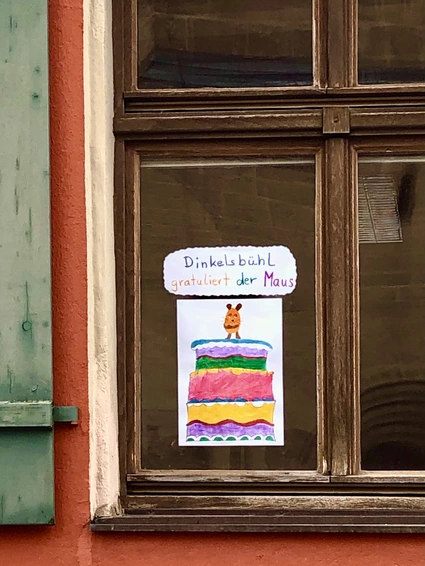 Dinkelsbühl
gratuliert der Maus